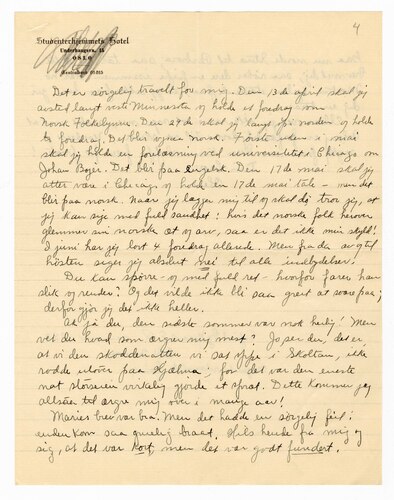 4
Studenterhjemmets Hotel
Underhaugsvn. 15
OSLO
Det er sørgelig travelt for mig. Den 13de april skal jeg
avsted langt vest i Minnesota og holde et foredrag om
Norsk Folkelynne. Den 29de skal jeg langt op i norden og holde
to foredrag. Det blir ogsaa norsk. Første uken i mai
skal jeg holde en forelæsning ved universitetet i Chicago om
Johan Bojer. Det blir paa engelsk. Den 17de mai skal jeg
atter være i Chicago og holde en 17de mai tale – men det
blir paa norsk. Naar jeg lægger mig til og skal dø tror jeg, at
jeg kan sige med fuld sandhet: hvis det norske folk herover
glemmer sin norske æt og arv, saa er det ikke min skyld!
I juni har jeg lovt 4 foredrag allerede. Men fra da av og til
høsten siger jeg absolut nei til alle indbydelser.
Du kan spørre – og med full ret – hvorfor farer han
slik og render? Og det vilde ikke bli saa greit at svare paa;
derfor gjør jeg det ikke heller.
Aa ja du, den sidste sommer var nok herlig! Men
vet du hvad som ærgrer mig mest? Jo ser du, det er,
at vi den skoddenatten vi sat oppe i Skoltan, ikke
rodde utover paa Hjalma for det var den eneste
nat størjen virkelig gjorde et sprat. Dette kommer jeg
altsaa til ærgre mig over i mange aar!
Maries brev var bra. Men det hadde en sørgelig feil:
enden kom saa gruelig braat. Hils hende fra mig og
sig, at det var kort, men det var godt fundert.